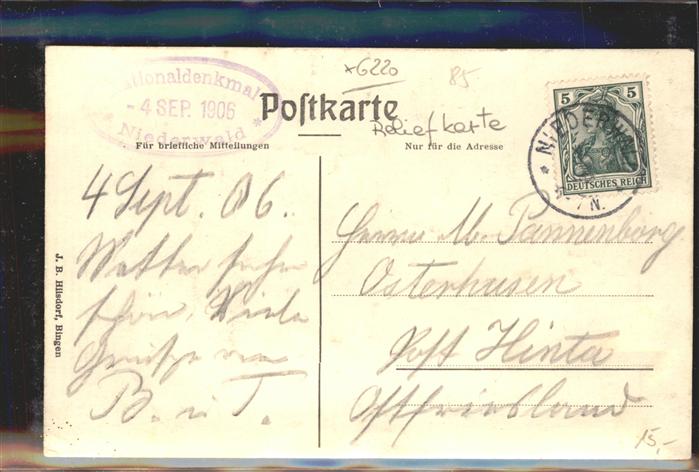 *6220
85
Nationaldenkmal
- 4 SEP. 1906
* Niederwald *
Postkarte
Reliefkarte
Für briefliche Mitteilungen
Nur für die Adresse
5 5
DEUTSCHES REICH
NIEDERWALD
7 N.
4 Sept. 06.
Wetter sehr
schön. Viele
Grüße von
B. u T.
J. B. Hilsdorf, Bingen
Herrn M. Pannenborg
Osterhusen
Post Hinta
Ostfriesland
15,-